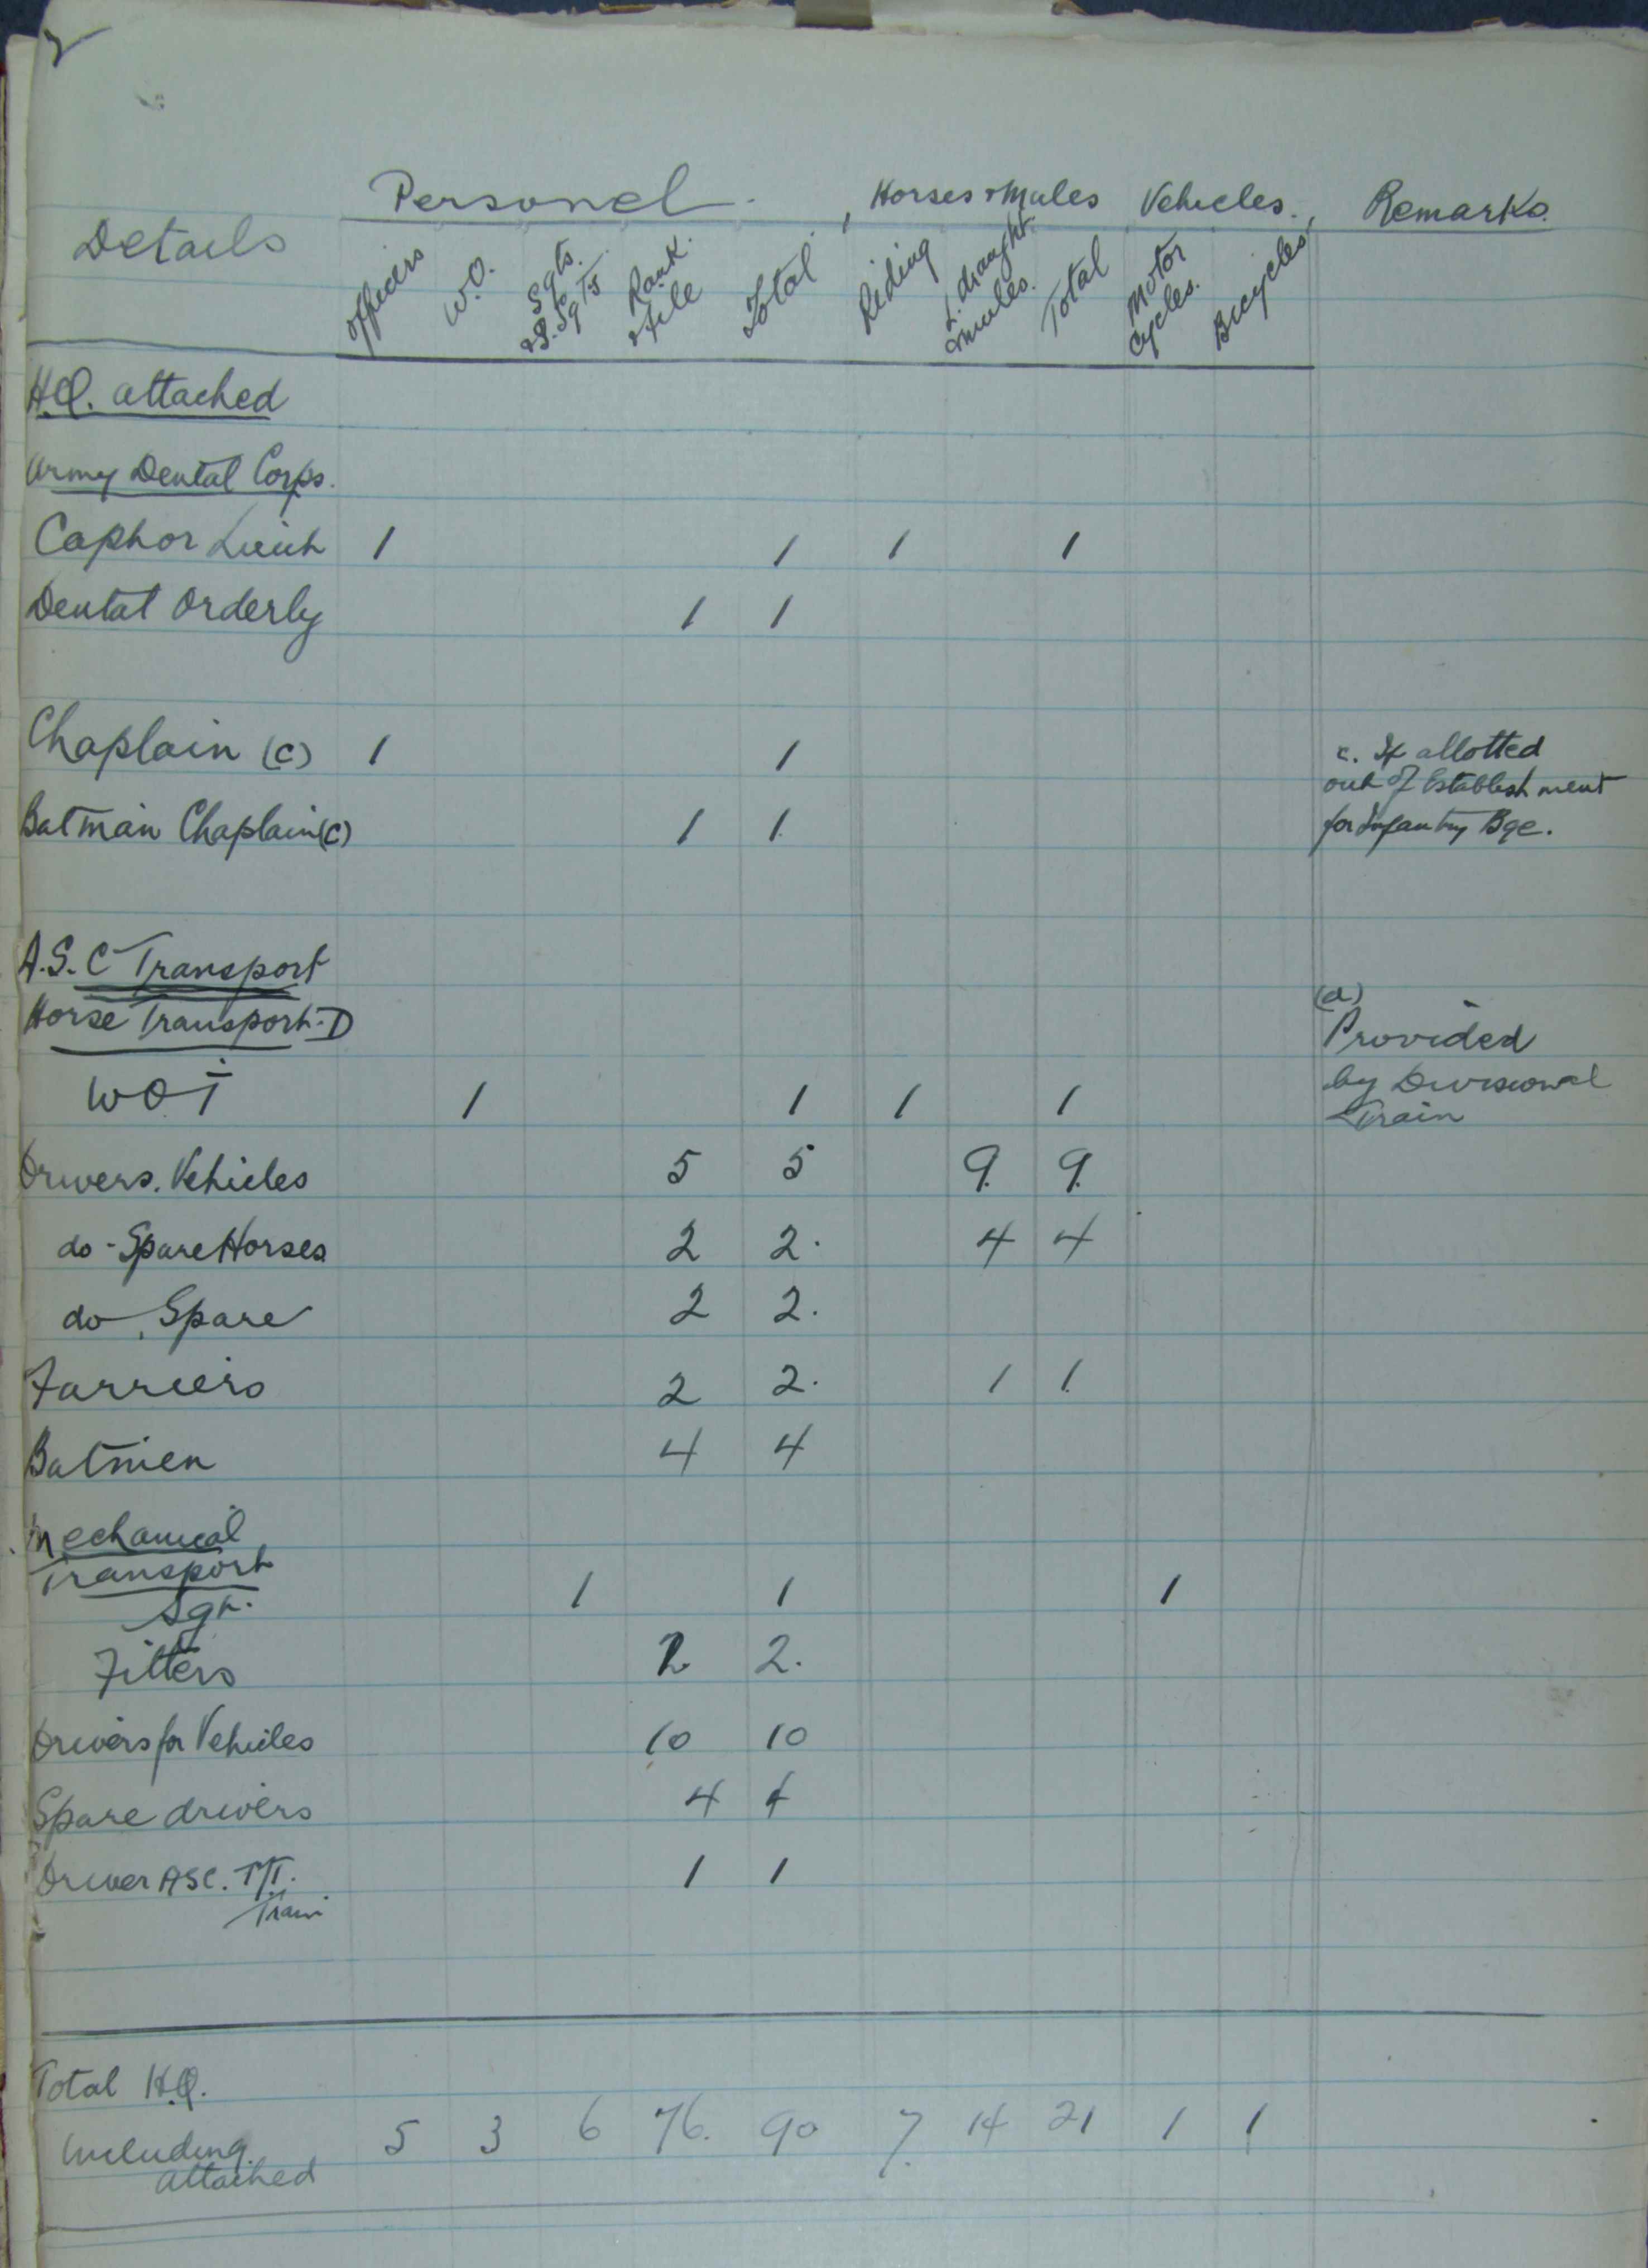 2
Personel. Horses & Mules Vehicles. Remarks.
Details
Officers W.O. Sgts. & S. Sgts Rank & File Total Riding L. draught & mules. Total Motor Cycles. Bicycles
H.Q. attached
Army Dental Corps.
Capt or Lieut 1 1 1 1
Dental Orderly 1 1
Chaplain (C) 1 1 c. If allotted
out of Establishment
Batman Chaplain (C) 1 1 for Infantry Bge.
A.S.C Transport
(d)
Horse Transport. D Provided
WO I 1 1 1 1 by Divisional
Train
Drivers. Vehicles 5 5 9 9
do - Spare Horses 2 2. 4 4
do, Spare 2 2.
Farriers 2 2. 1 1
Batmen 4 4
Mechanical
Transport
Sgt. 1 1 1
Fitters 2 2.
Drivers for Vehicles 10 10
Spare drivers 4 4
Driver ASC. 1 1
Train
Total H.Q.
Including 5 3 6 76. 90 7. 14 21 1 1
attached